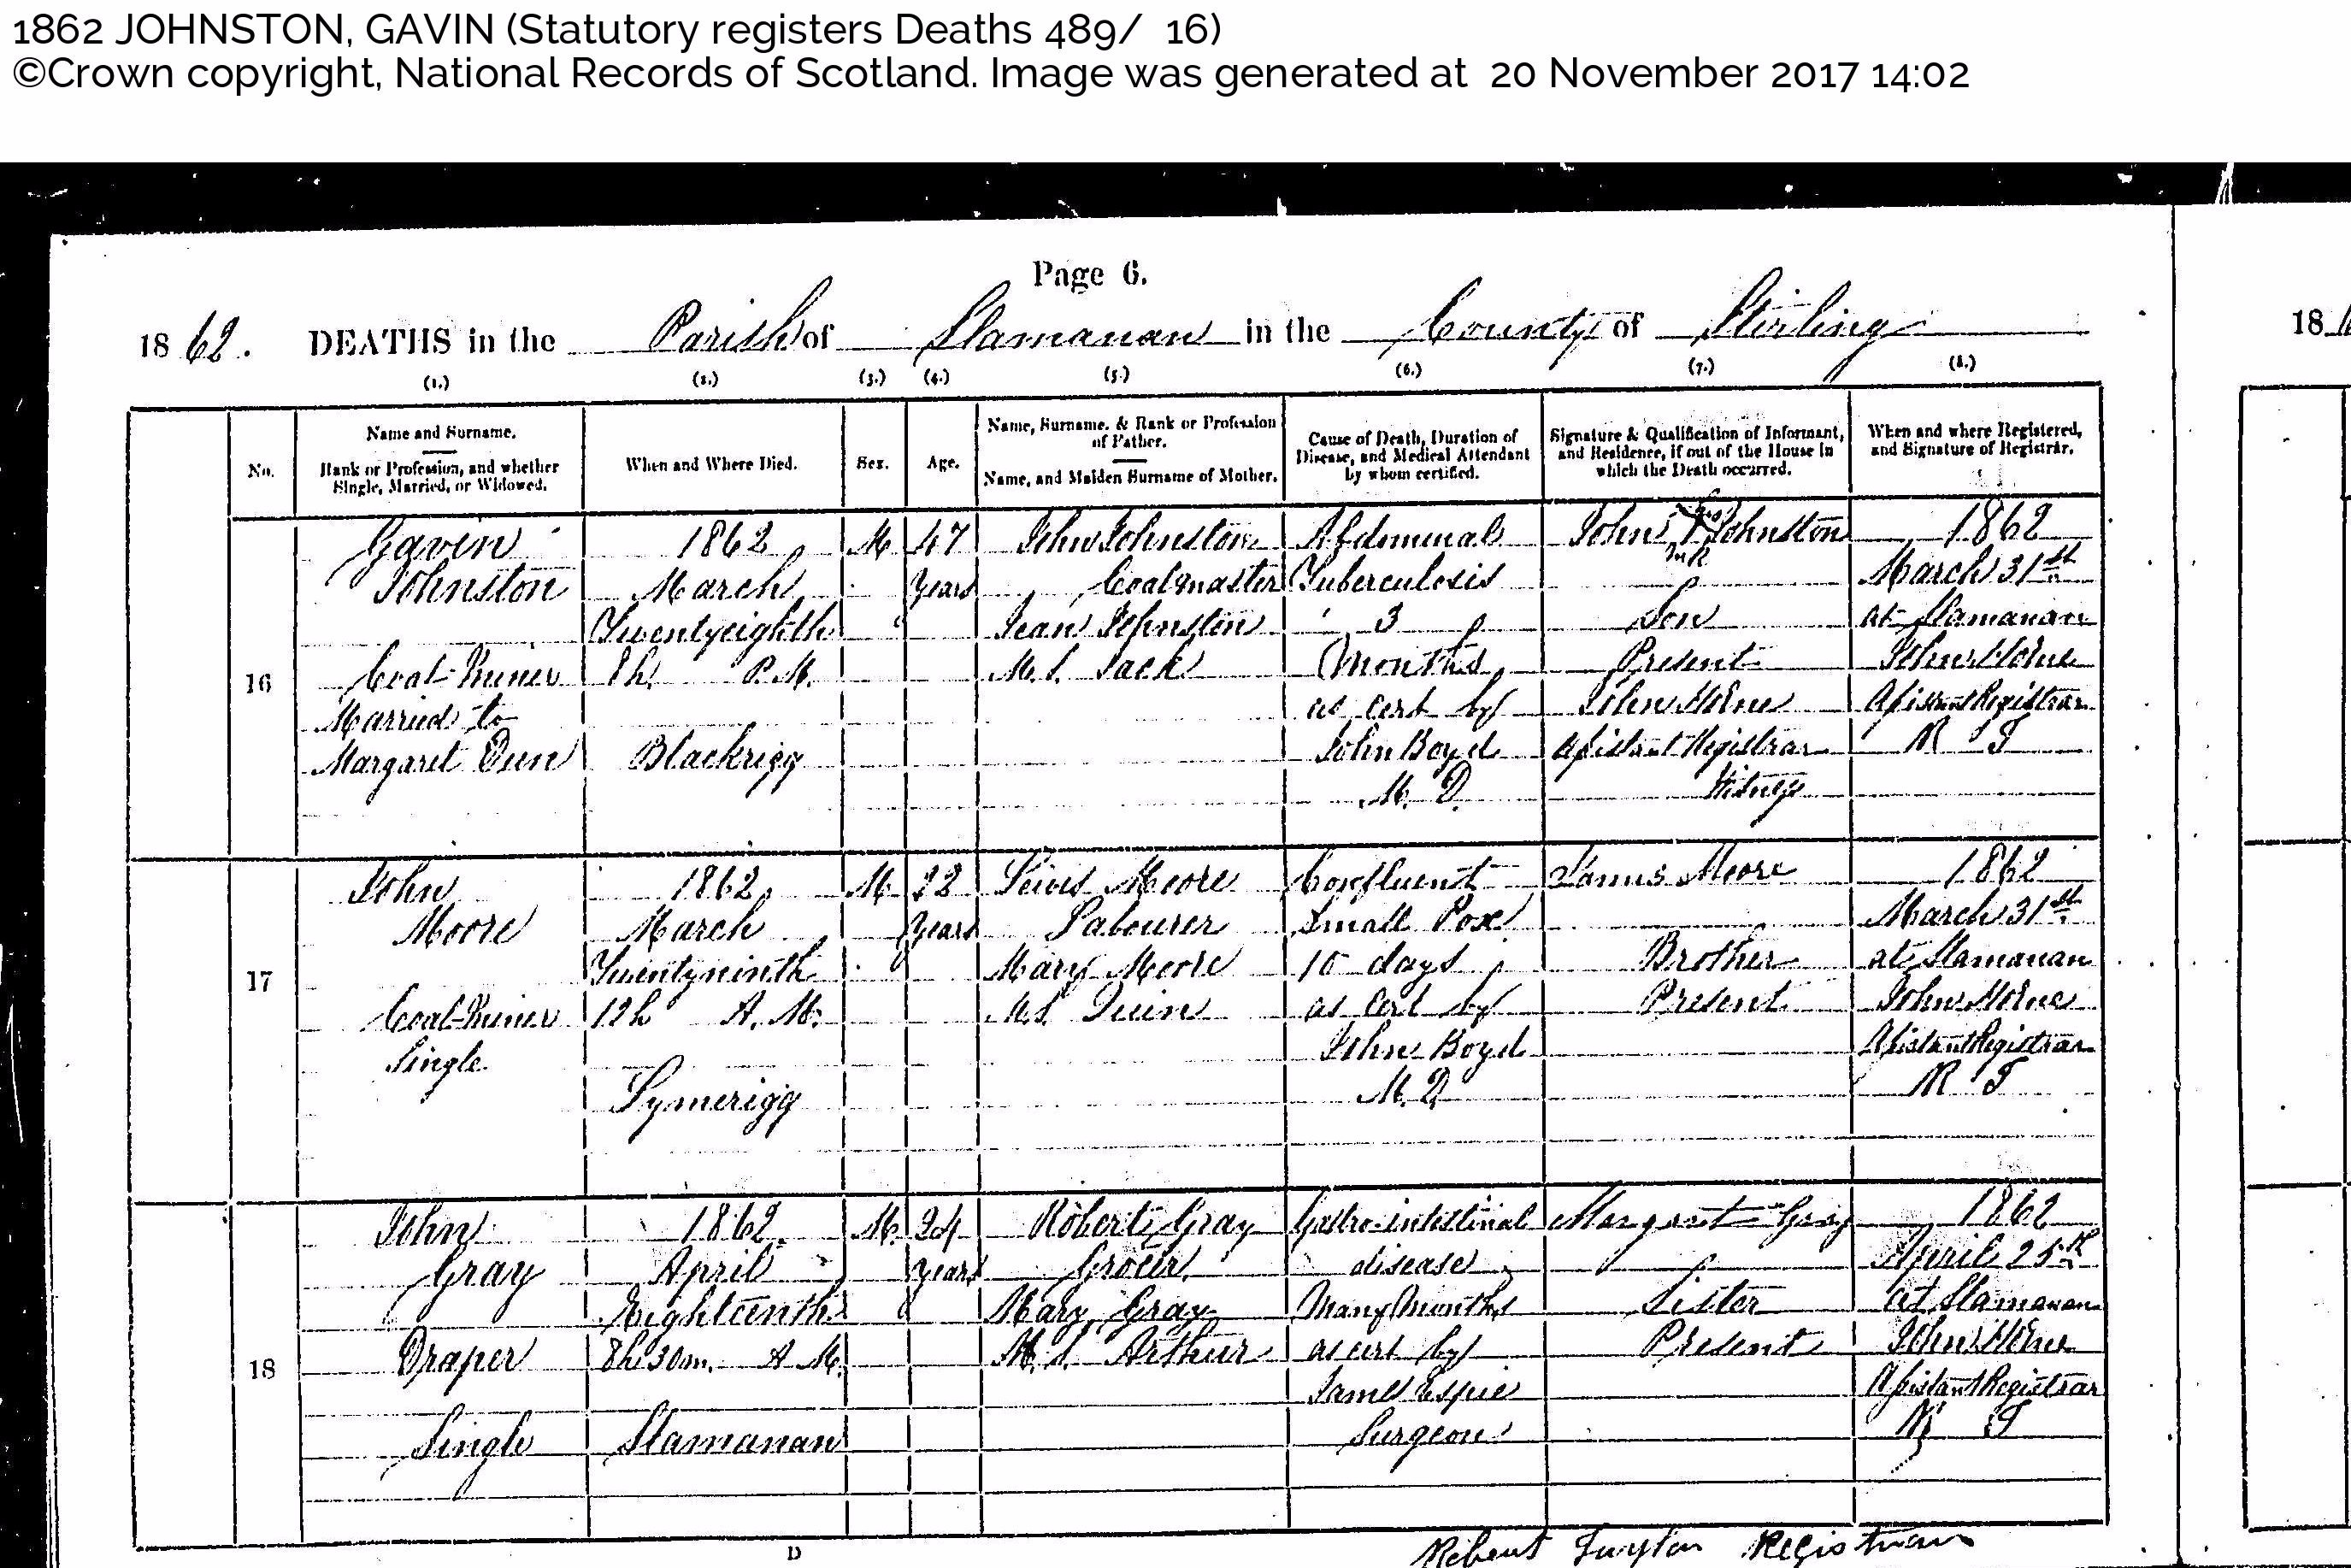 1862 JOHNSTON, GAVIN (Statutory registers Deaths 489/ 16)
©Crown copyright, National Records of Scotland. Image was generated at 20 November 2017 14:02
Page 6.
1862. DEATHS in the Parish of Slamanan in the County of Stirling
18
(1.) (2.) (3.) (4.) (5.) (6.) (7.) (8.)
No.
Name and Surname.
Rank or Profession, and whether
Single, Married, or Widowed.
When and Where Died.
Sex.
Age.
Name, Surname, & Rank or Profession
of Father.
Name, and Maiden Surname of Mother.
Cause of Death, Duration of
Disease, and Medical Attendant
by whom certified.
Signature & Qualification of Informant,
and Residence, if out of the House in
which the Death occurred.
When and where Registered,
and Signature of Registrar.
16
Gavin
Johnston
Coal-Miner
Married to
Margaret Dun
1862
March
Twentyeighth
8h. P.M.
Blackrigg
M
47
Years
John Johnston
Coalmaster
Jean Johnston
M.S. Jack
Abdominal
Tuberculosis
3
Months
as cert by
John Boyd
M.D.
his
John X Johnston
mark
Son
Present
John Horne
Assistant Registrar
Witness
1862
March 31st
at Slamanan
John Horne
Assistant Registrar
R T
17
John
Moore
Coal-Miner
Single
1862
March
Twentyninth
12h A.M.
Lymerigg
M
22
Years
Lewis Moore
Labourer
Mary Moore
M.S. Quin
Confluent
Small Pox
10 days
as Cert by
John Boyd
M.D
James Moore
Brother
Present
1862
March 31st
at Slamanan
John Horne
Assistant Registrar
R T
18
John
Gray
Draper
Single
1862
April
Eighteenth
8h 30m. A.M.
Slamanan
M.
24
Years
Robert Gray
Grocer
Mary Gray
M.S. Arthur
Gastro-intestinal
disease
Many Months
as cert by
James Espie
Surgeon
Margaret Gray
Sister
Present
1862
April 25th
At Slamanan
John Horne
Assistant Registrar
R T
D
Robert Registrar